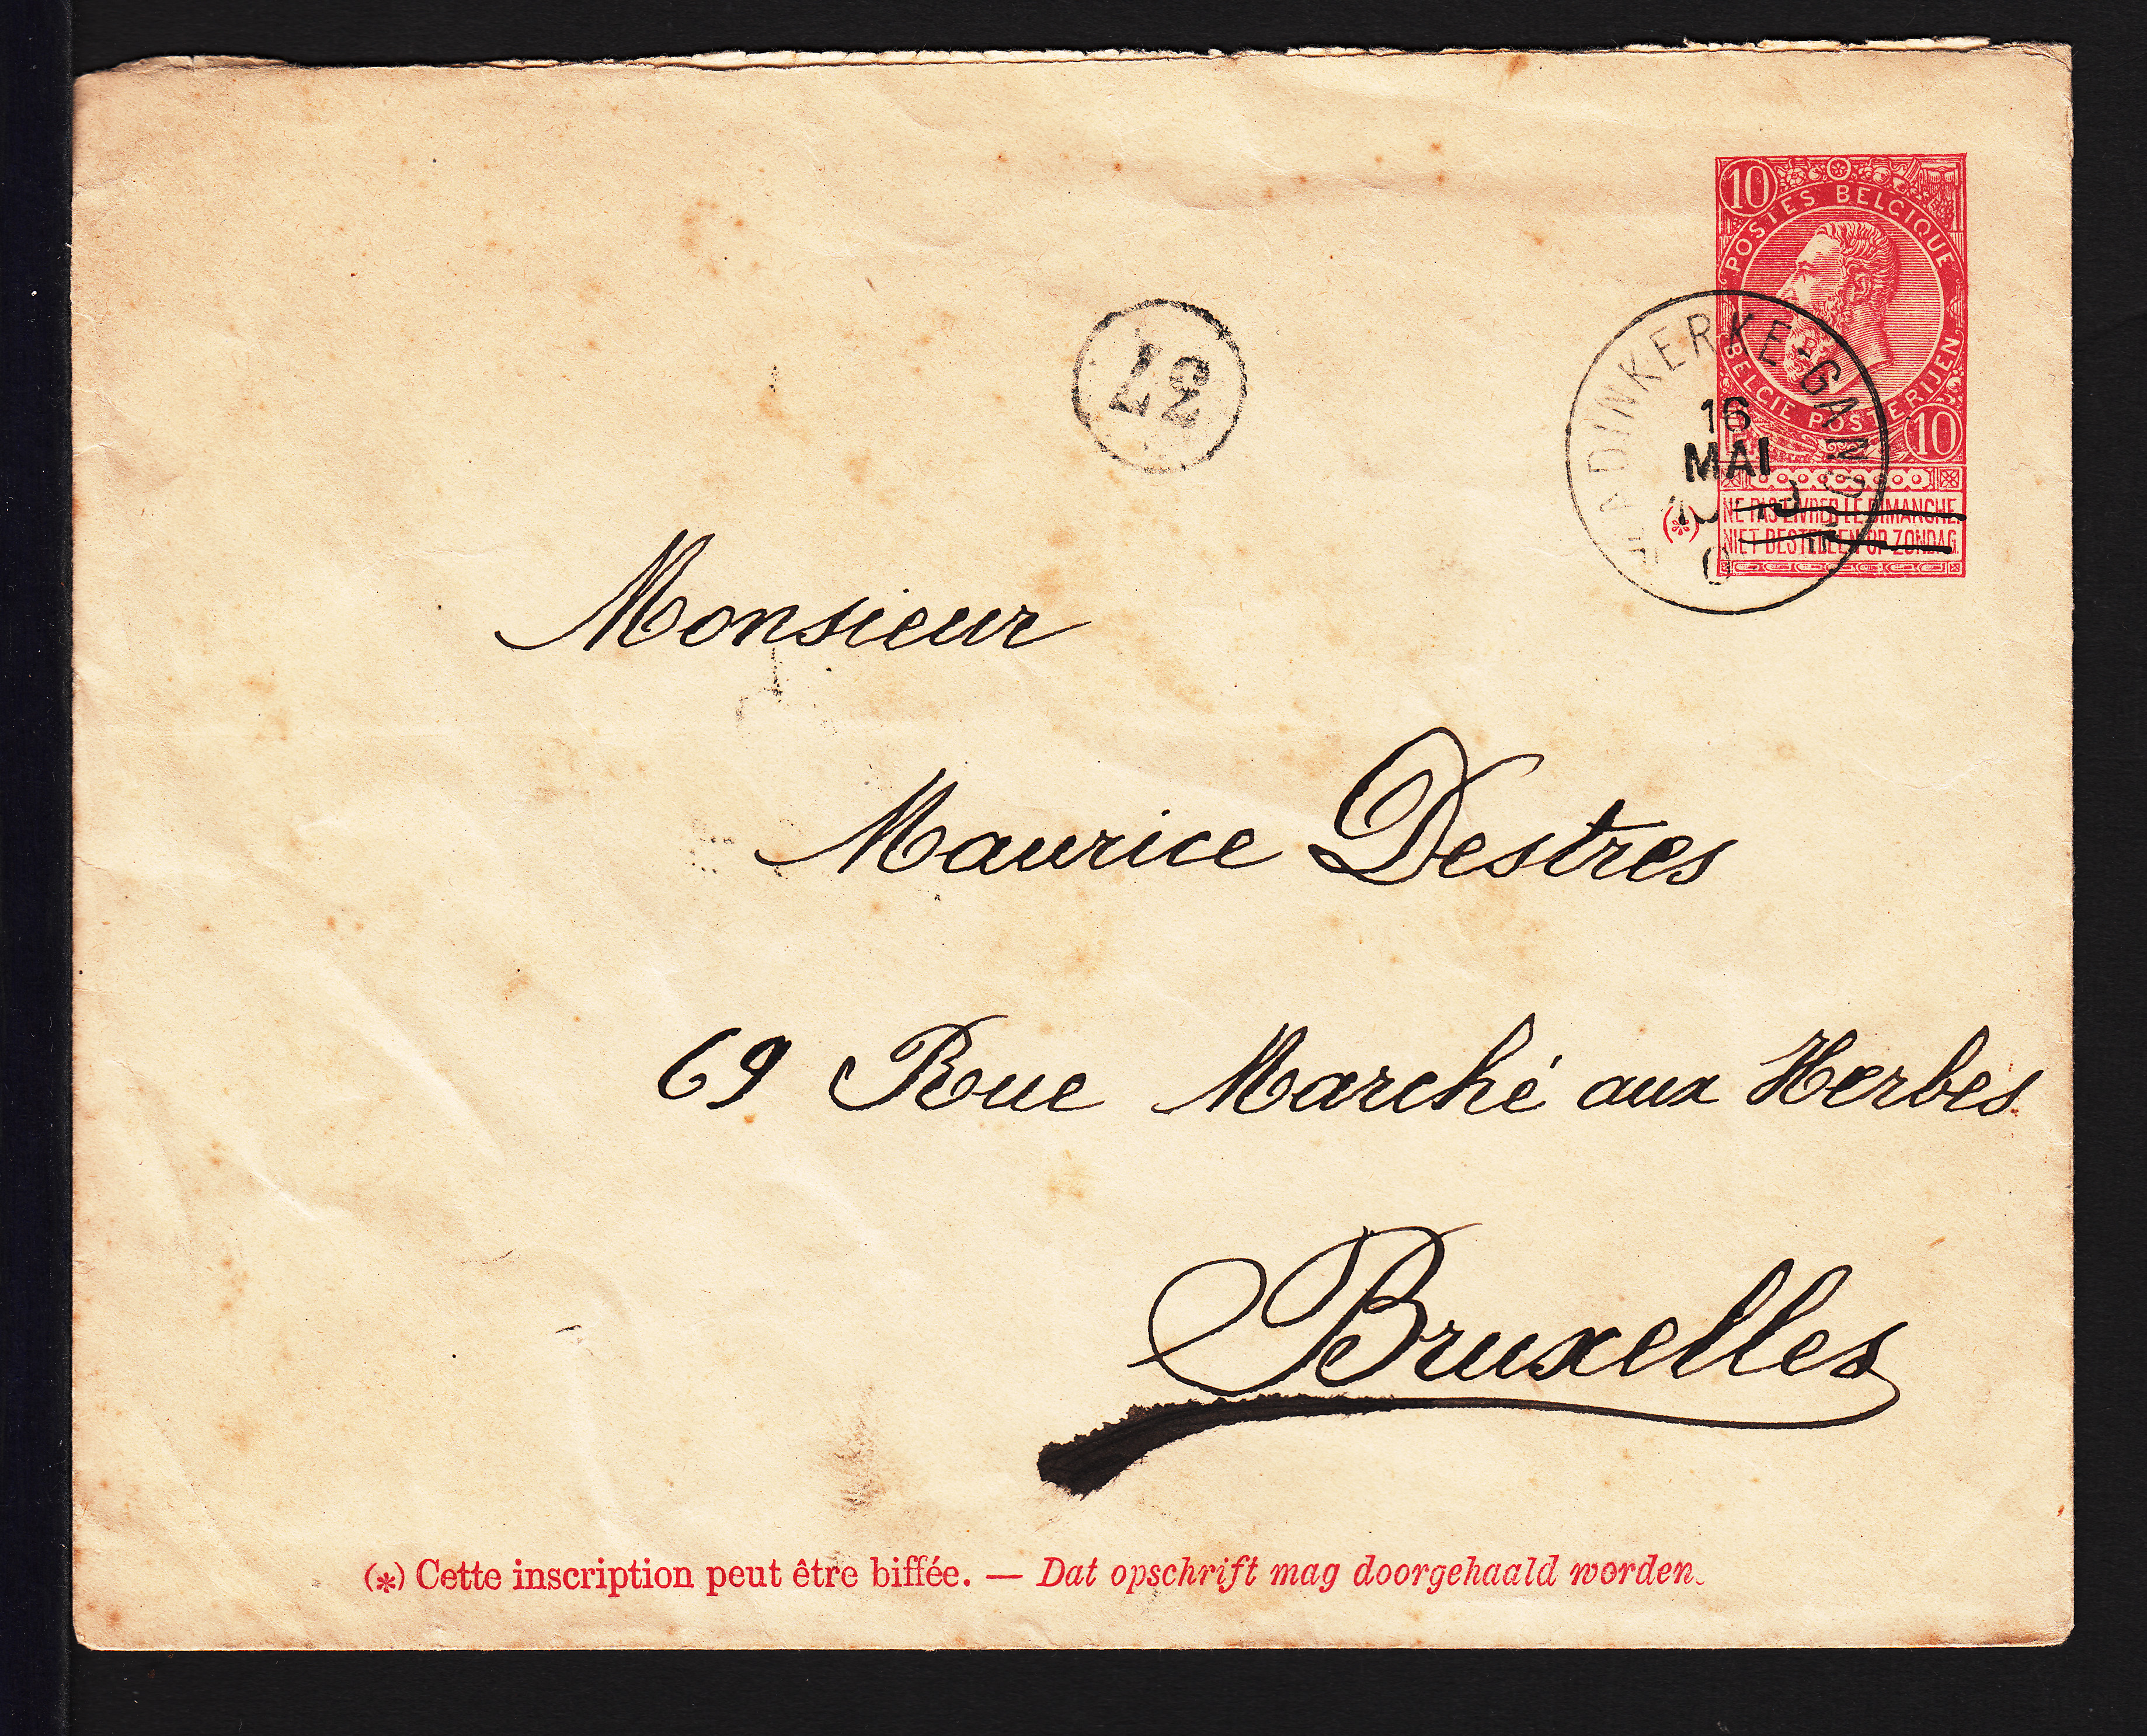 10
POSTES BELGIQUE
BELGIE POSTERIJEN
10
NE PAS LIVRER LE DIMANCHE.
(*)
NIET BESTELLEN OP ZONDAG.
ADINKERKE-GAND
16
MAI
37
Monsieur
Maurice Destres
69 Rue Marché aux Herbes
Bruxelles
(*) Cette inscription peut être biffée. — Dat opschrift mag doorgehaald worden.